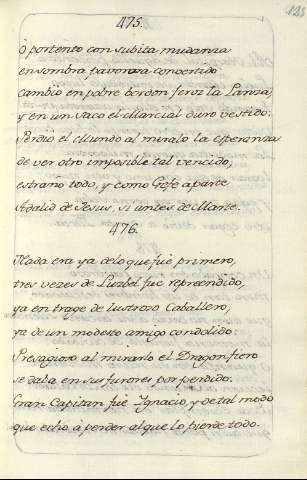 475.
O portento con subita mudanza
en sombra pavorosa convertido
cambiò en pobre bordon feroz la Lanza,
y en un saco el Marcial duro vestido:
Perdiò el Mundo al miralo la esperanza
de ver otro imposible tal vencido,
estraño todo, y como Gefe aparte
Adalid de Jesus, si antes de Marte.
476.
Nada era ya de lo que fue primero,
tres vezes de Luzbel fue reprendido,
ya en trage de lustroso Caballero,
ya de un modesto amigo condolido:
Presagioso al mirarlo el Dragon fiero
se daba en sus furores por perdido:
Gran Capitan fue Ignacio, y de tal modo
que echò à perder al que lo pierde todo.